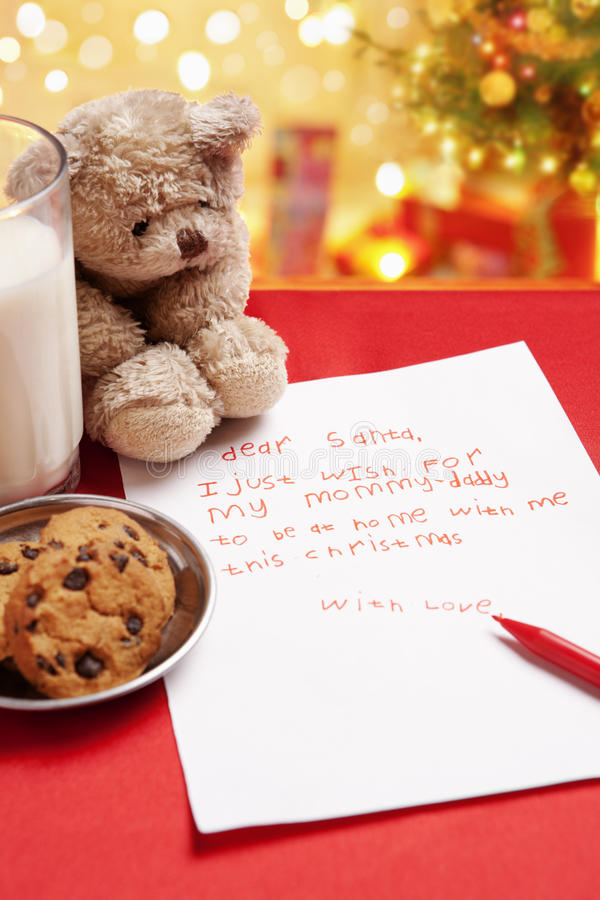 dear santa,
I just wish for
my mommy-daddy
to be at home with me
this christmas
with love,